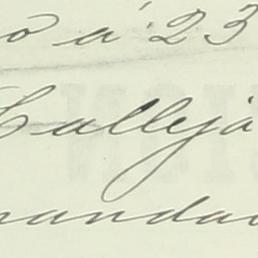 o a 23
Calleja
mandad